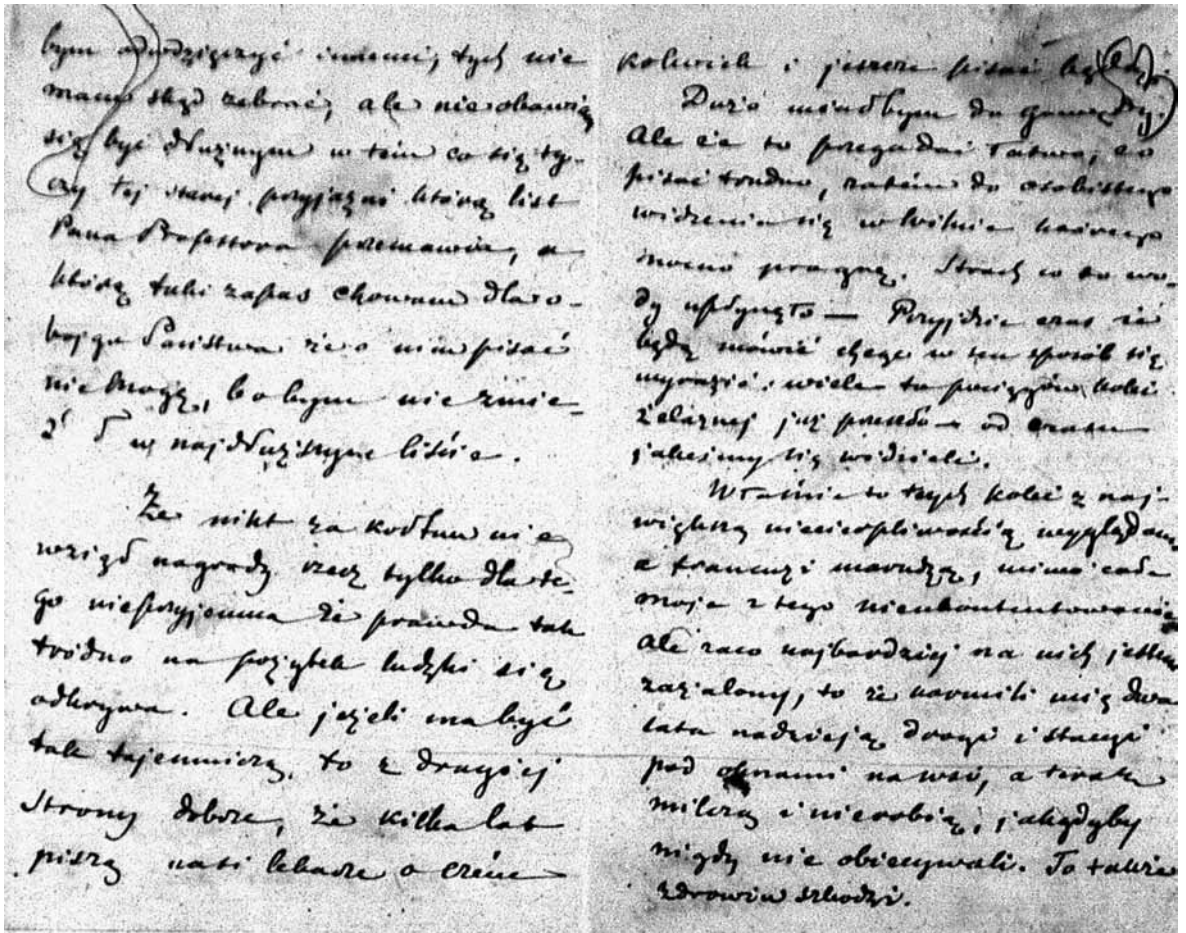 bym odwdzięczyć innemi, tych nie
mam skąd zebrać, ale nie obawiam
się być dłużnym w tém co się ty-
czy tej starej przyjaźni którą list
Pana Professora przemawia, a
którą taki zapas chowam dla o-
bojga Państwa że o nim pisać
nie mogę, bobym nie zmie-
ś ł w najdłuższym liście.
Że nikt za kołtun nie
wziął nagrody rzecz tylko dla te-
go nieprzyjemna że prawda tak
trudno na pożytek ludzki się
odkrywa. Ale jeżeli ma być
tak tajemniczą, to z drugiej
strony dobrze, że kilka lat
piszą nasi lekarze o czém
kolwiek i jeszcze pisać będą.
Dużo miałbym do gawędy.
Ale że to przegadać łatwo, a
pisać trudno, zatém do osobistego
widzenia się w Wilnie którego
mocno pragnę. Strach co to wo-
dy upłynęło — Przyjdzie czas że
będą mówić chcąc w ten sposób się
wyrazić: wiele to pociągów kolei
żelaznej już przeszło od czasu
jakeśmy się widzieli.
Właśnie to tych kolei z naj-
większą niecierpliwością wyglądam,
a francuzi marudzą, mimo całe
moje z tego nieukontentowanie
ale za co najbardziej na nich jestem
zażalony, to że karmili mię dwa
lata nadzieją drogi i stacyi
pod oknami na wsi, a teraz
milczą i nierobią, jakgdyby
nigdy nie obiecywali. To także
zdrowiu szkodzi.